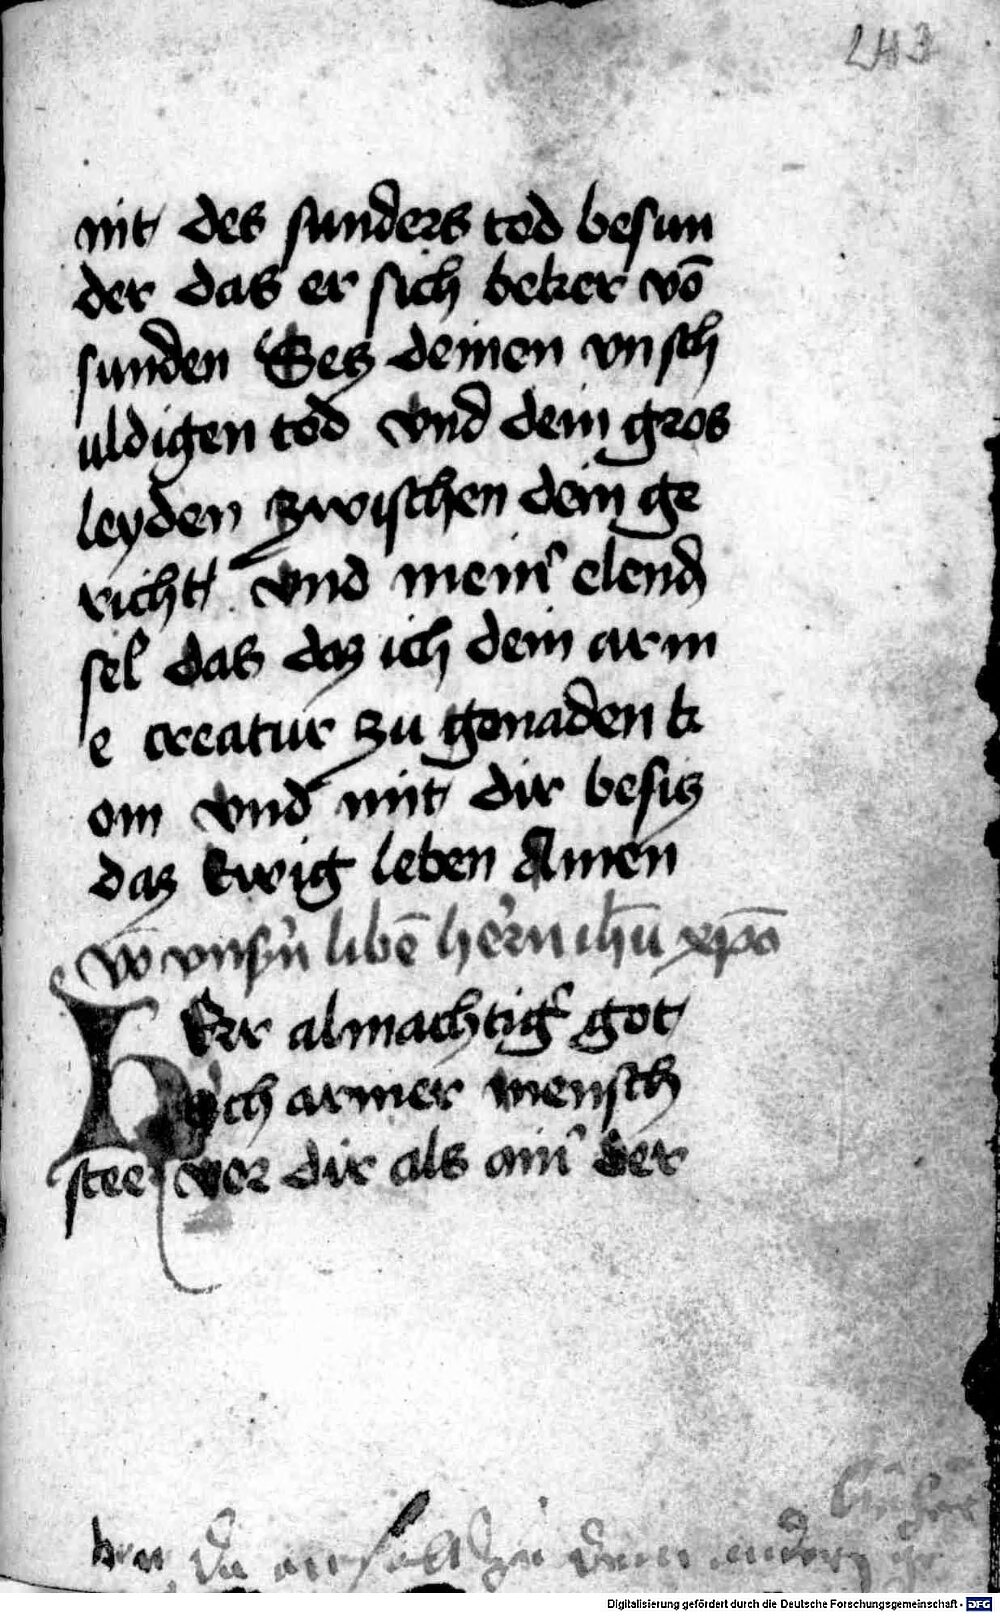 243
nit des sunders tod besun
der das er sich beker vō
sunden Secz deinen vnsch
uldigen tod vnd dein gros
leyden zwischen dein ge
richt vnd mein' elend
sel das daz ich dein arm
e creatur zu genaden k
om vnd mit dir besicz
daz Ewig leben Amen
vō vns'n libē hern ihū xpō
HErr almachtig' got
ych armer mensch
stee vor dir als ain' der
zu dem andern
Digitalisierung gefördert durch die Deutsche Forschungsgemeinschaft - DFG